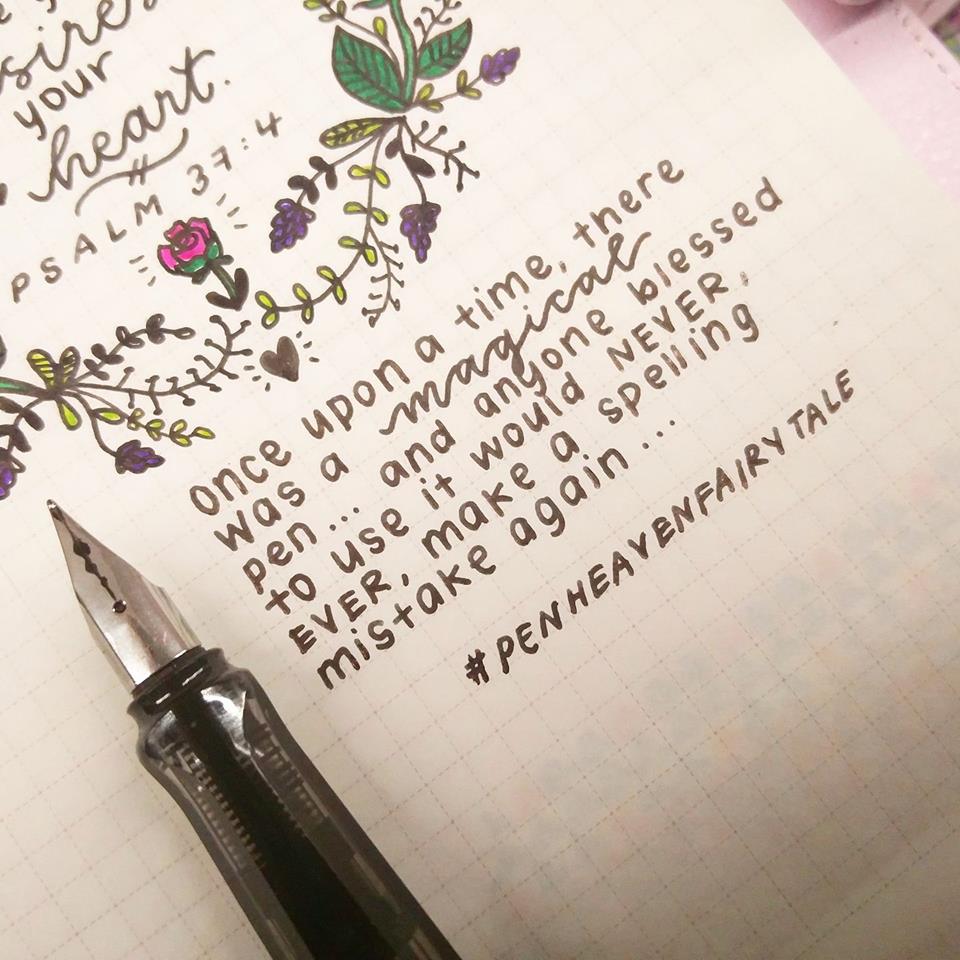 your
heart.
PSALM 37:4
once upon a time, there
was a magical
pen... and anyone blessed
to use it would NEVER,
EVER, make a spelling
mistake again...
#PENHEAVENFAIRYTALE